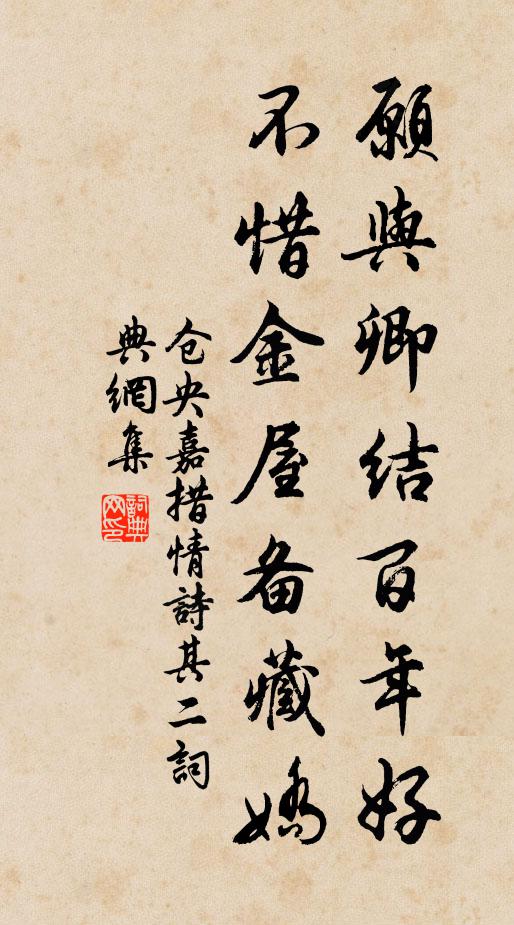 願與卿結百年好
不惜金屋备藏嬌
仓央嘉措情詩其二詞
典網集
詞典
网印